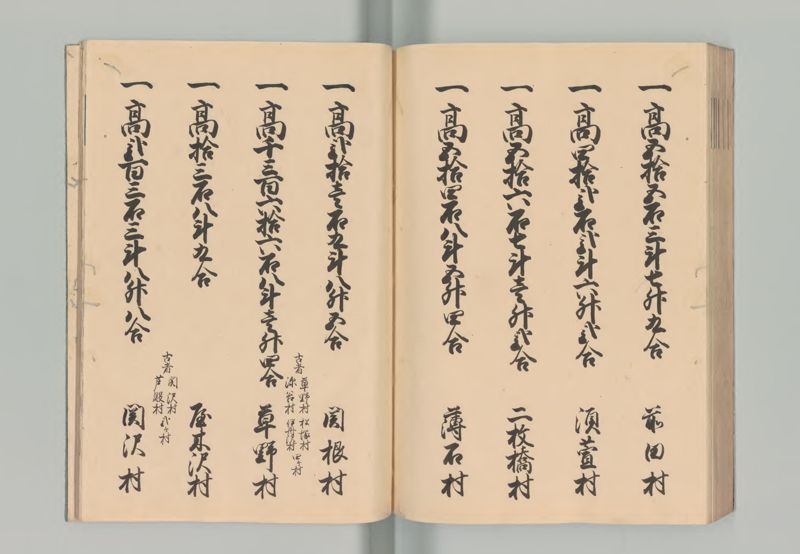 一高五拾五石三斗七升九合 前田村
一高四拾弐石弐斗六升弐合 須萱村
一高五拾六石七斗壱升弐合 二枚橋村
一高五拾四石八斗五升四合 薄石村
一高弐拾壱石九斗八升五合 関根村
古者 草野村 松塚村
深谷村 伊丹沢村 四ヶ村
一高千三百六拾六石八斗壱升四合 草野村
一高拾三石八斗九合 屋木沢村
古者 関沢村
芦股村 弐ヶ村
一高弐百三石三斗八升八合 関沢村